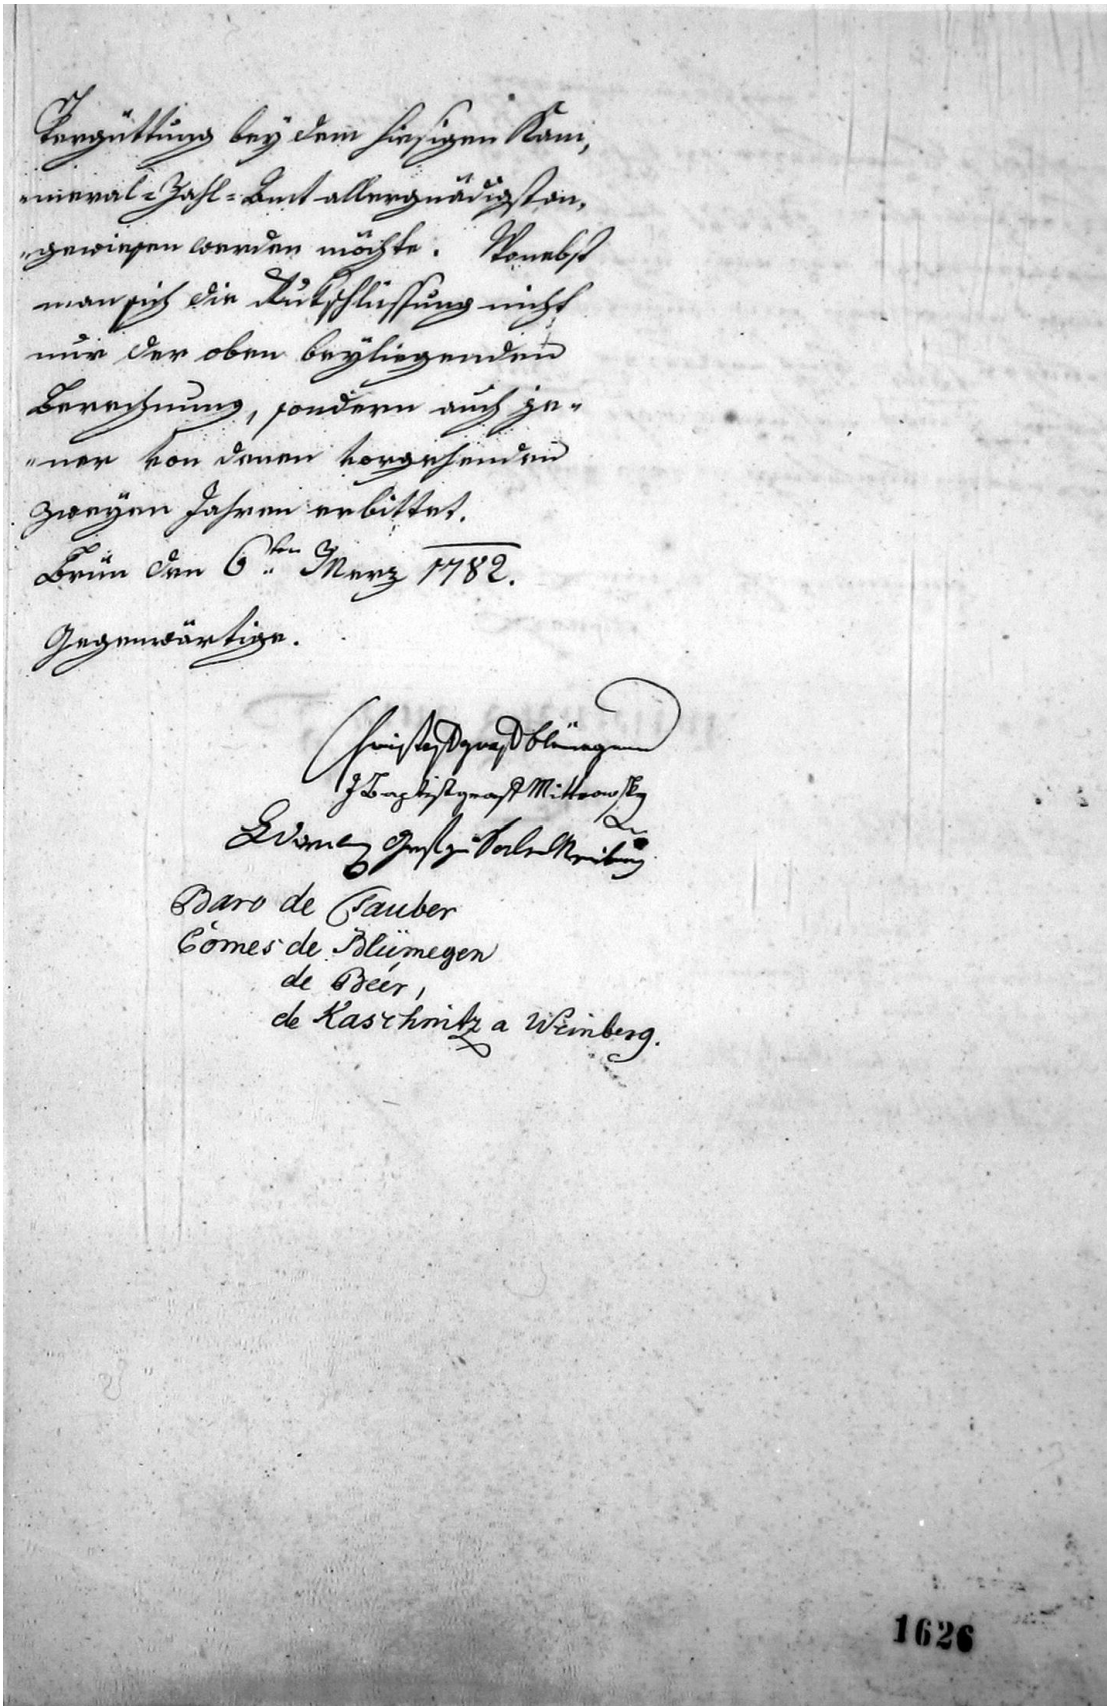 Vergüttung bey dem hiesigen Kam-
=meral-Zahl-Amt allergnädigst an-
=gewiesen werden möchte. Wonebst
man sich die Rukschlüssung nicht
nur der oben beyliegenden
Berechnung, sondern auch je-
=ner von denen vorgehenden
zweyen Jahren erbittet.
Brün den 6ten Merz 1782.
Gegenwärtige.
Christoph graf Blümegen
J Baptist graf Mittrowsky
Baro de Tauber
Comes de Blümegen
de Beér,
de Kaschnitz a Weinberg.
1626